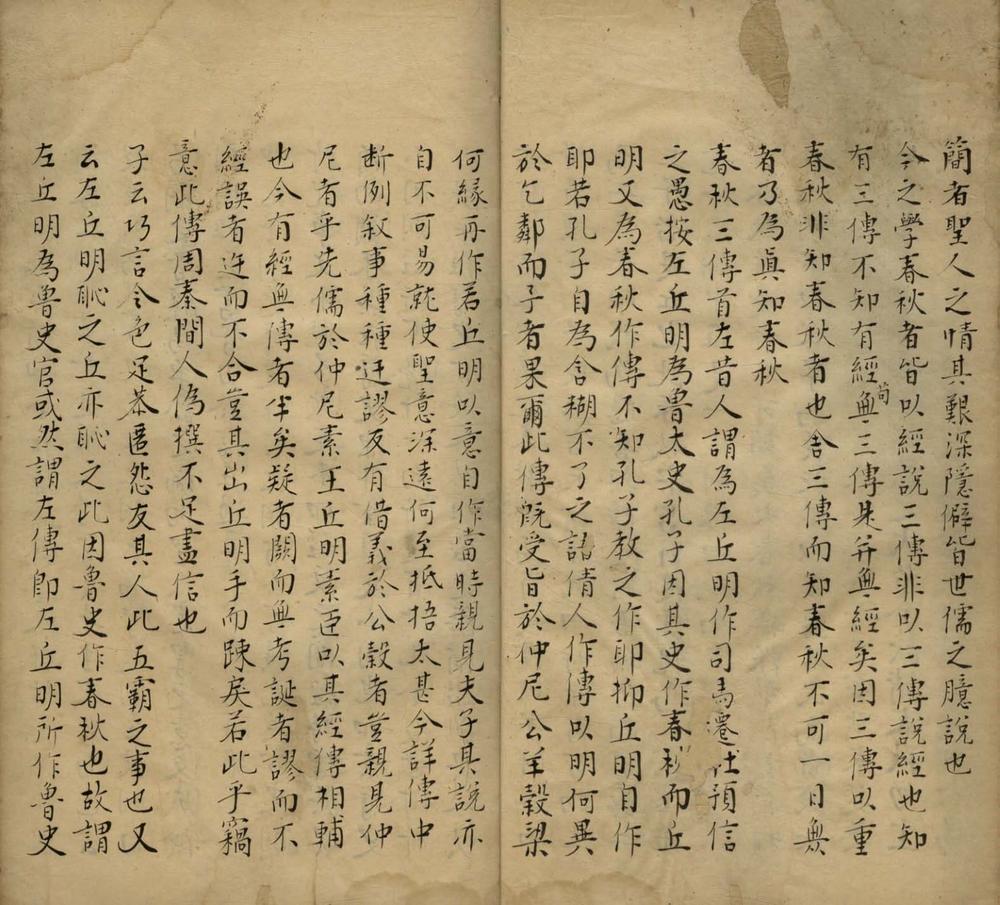 簡者聖人之情其艱深隱僻皆世儒之臆說也
今之學春秋者皆以經說三傳非以三傳說經也知
有三傳不知有經苟無三傳是并無經矣因三傳以重
春秋非知春秋者也舍三傳而知春秋不可一日無
者乃為真知春秋
春秋三傳首左昔人謂為左丘明作司馬遷杜預信
之愚按左丘明為魯太史孔子因其史作春秋而丘
明又為春秋作傳不知孔子教之作耶抑丘明自作
耶若孔子自為含糊不了之語倩人作傳以明何異
於乞鄰而子者果爾此傳旣受旨於仲尼公羊穀梁
何緣再作若丘明以意自作當時親見夫子其說亦
自不可易就使聖意深遠何至抵捂太甚今詳傳中
断例叙事種種迂謬反有借義於公穀者豈親見仲
尼者乎先儒於仲尼素王丘明素臣以其經傳相輔
也今有經無傳者半矣疑者闕而無考誕者謬而不
經誤者迕而不合豈其出丘明手而踈戾若此乎竊
意此傳周秦間人偽撰不足盡信也
子云巧言令色足恭匿怨友其人此五霸之事也又
云左丘明恥之丘亦恥之此因魯史作春秋也故謂
左丘明為魯史官或然謂左傳即左丘明所作魯史